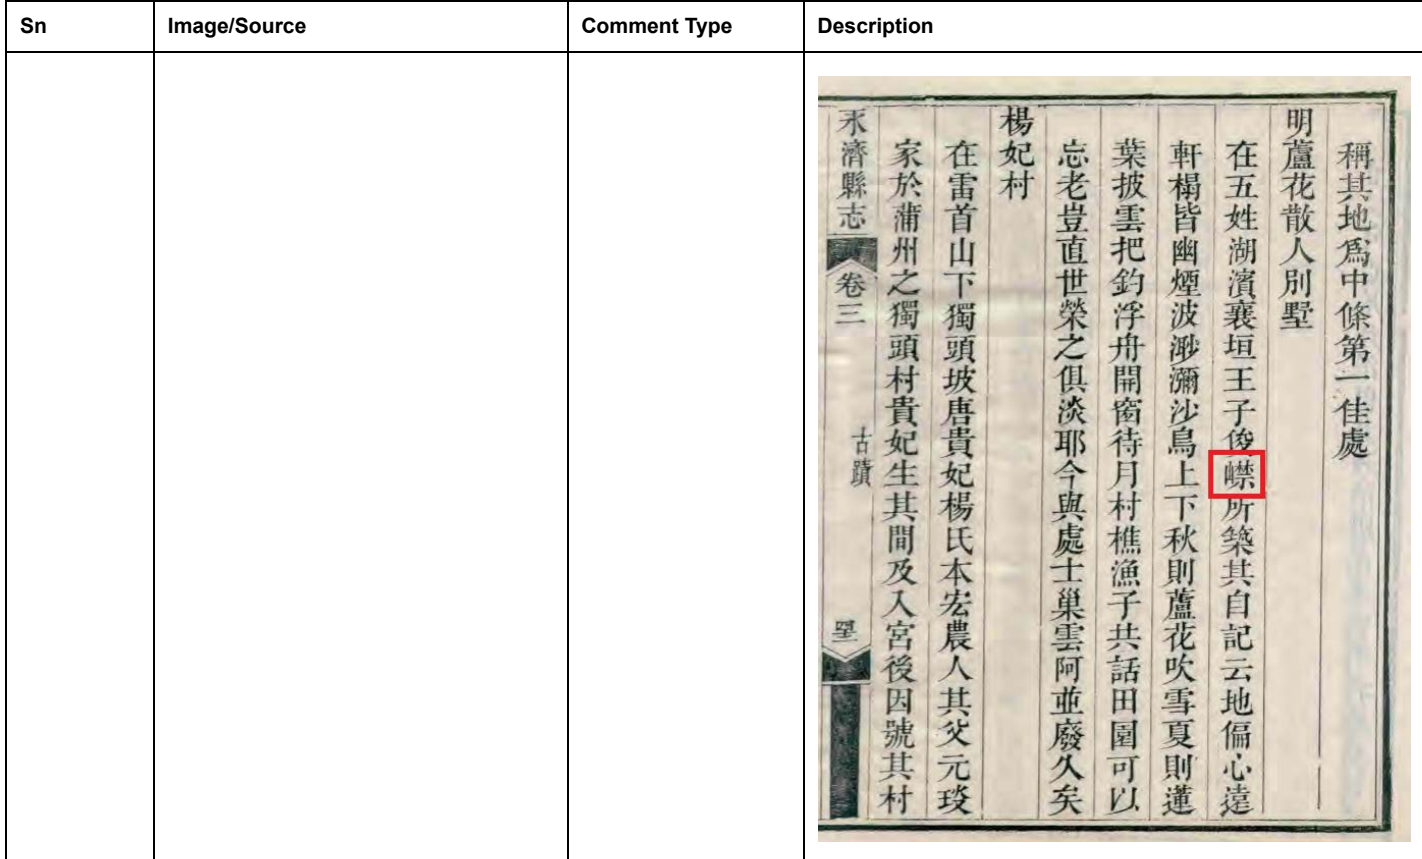 Sn Image/Source Comment Type Description
稱其地爲中條第一佳處
明蘆花散人別墅
在五姓湖濱襄垣王子俊所築其自記云地偏心遠
軒榻皆幽煙波渺瀰沙鳥上下秋則蘆花吹雪夏則蓮
葉披雲把釣浮舟開窗待月村樵漁子共話田園可以
忘老豈直世榮之俱淡耶今與處士巢雲阿並廢久矣
楊妃村
在雷首山下獨頭坡唐貴妃楊氏本宏農人其父元琰
家於蒲州之獨頭村貴妃生其間及入宮後因號其村
永濟縣志 卷三 古蹟